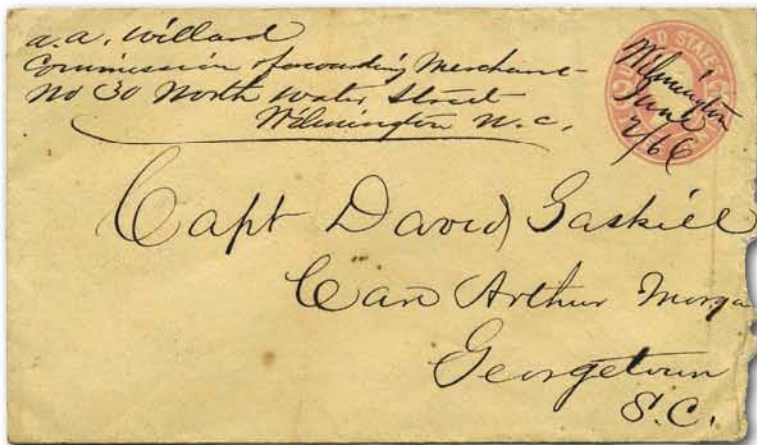 a.a. Willard
Commission & forwarding Merchant
No 30 North Water Street
Wilmington N.C.
UNITED STATES
Wilmington
June
2/66
Capt David Gaskill
Care Arthur Morga
Georgetown
S.C.